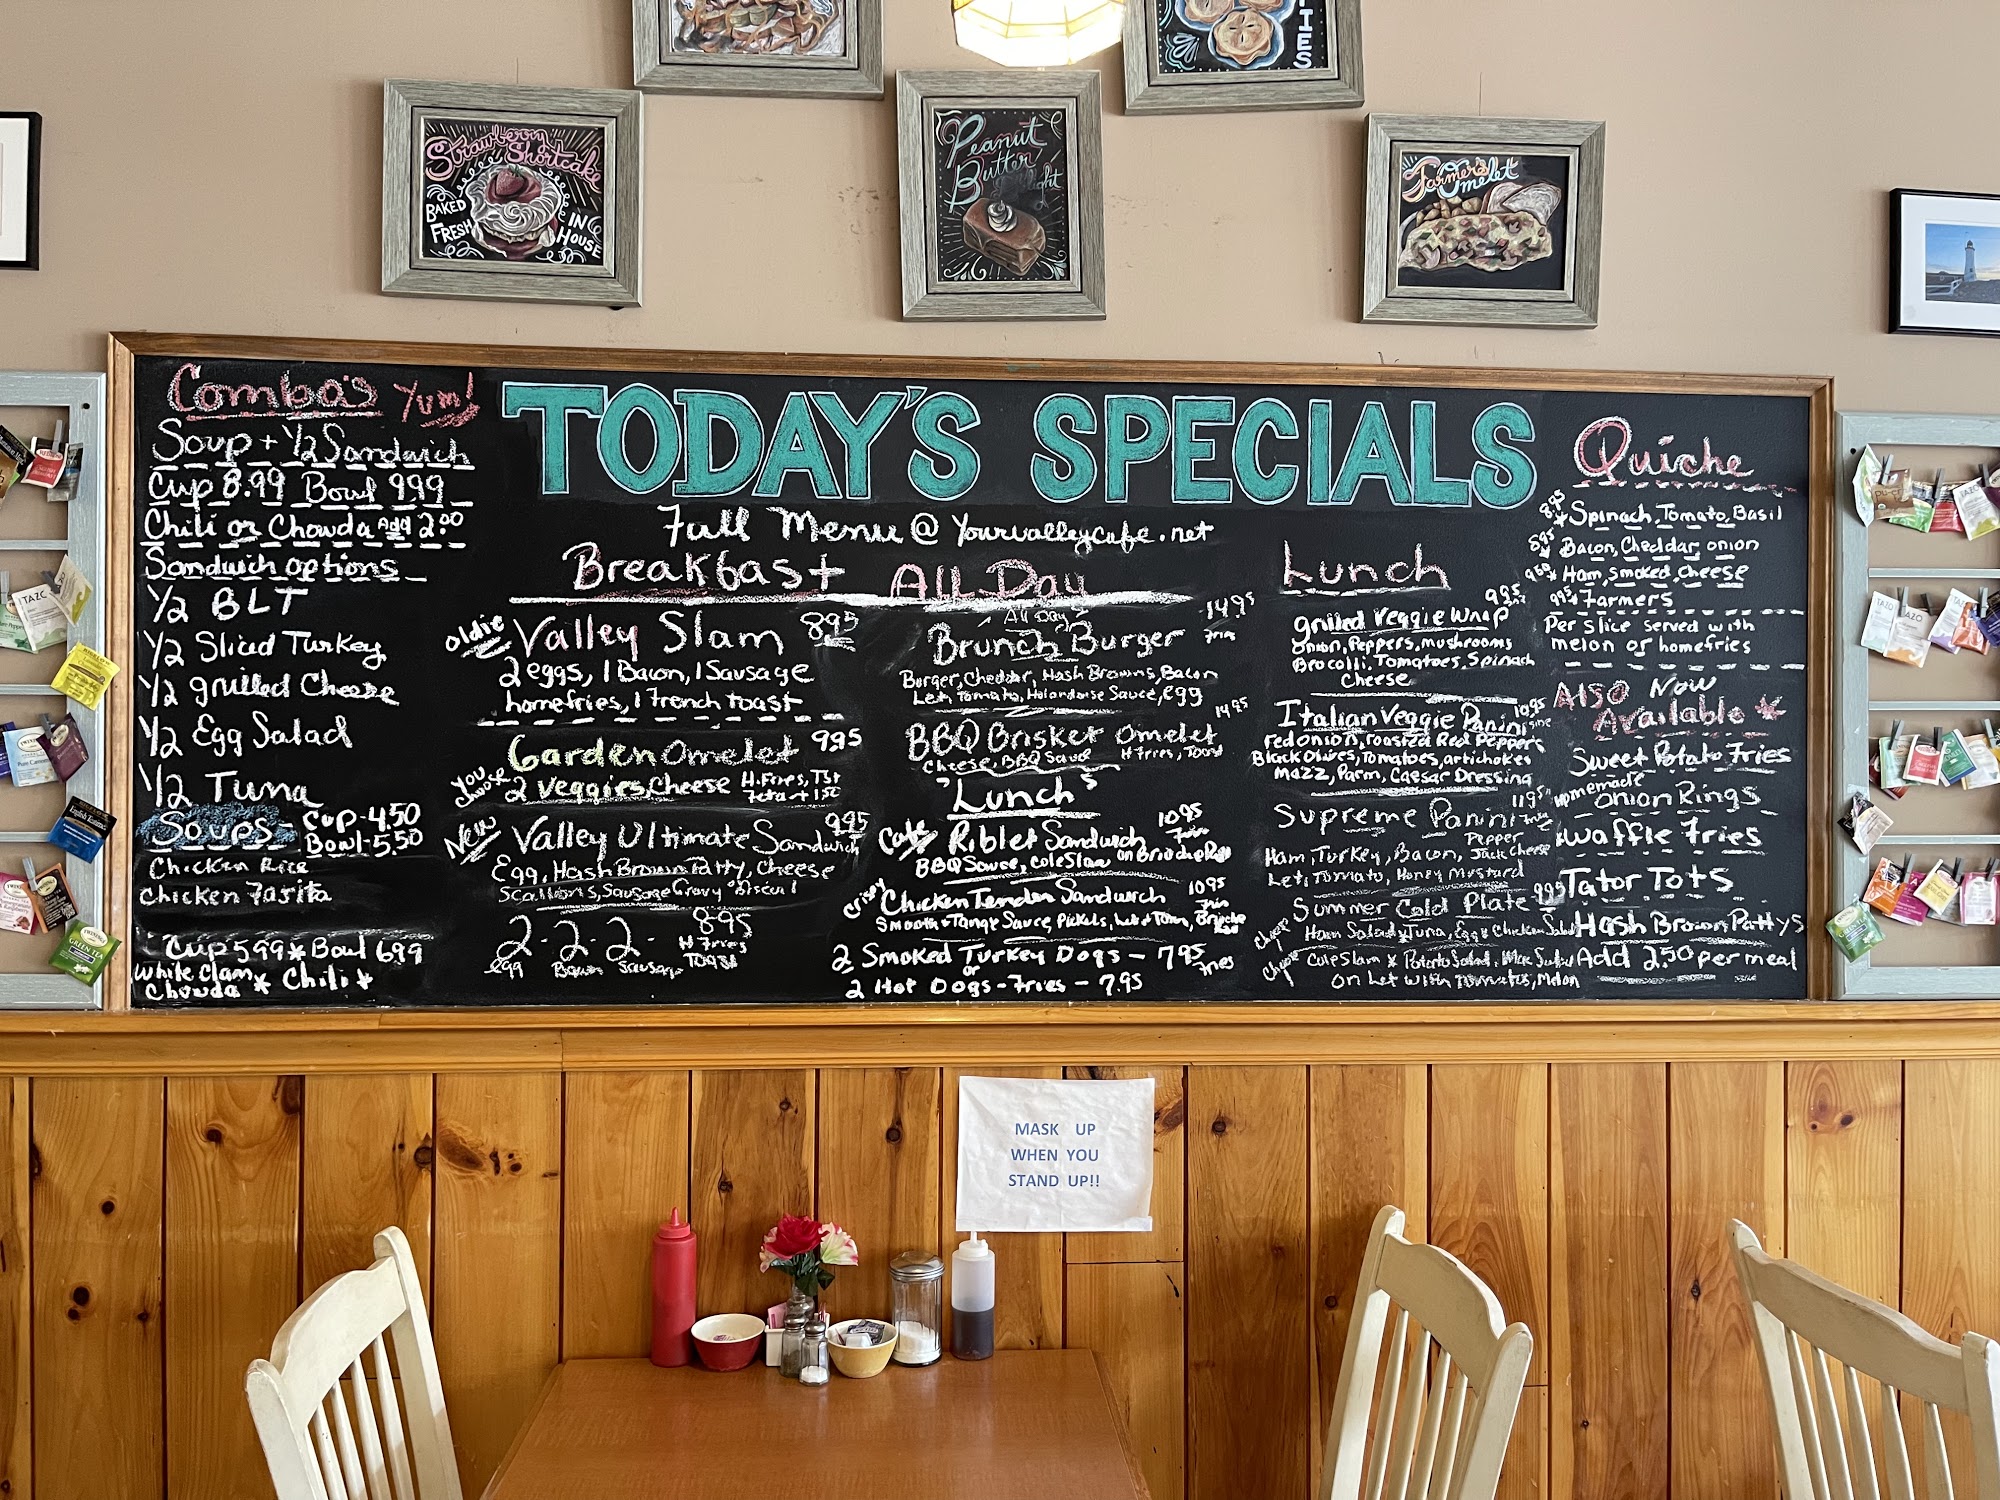 Strawberry
Shortcake
BAKED
FRESH
IN
HOUSE
Peanut
Butter
IES
Farmer's
Omelet
Combo's Yum!
Soup + 1/2 Sandwich
Cup 8.99 Bowl 9.99
Chili or Chowda Add 2.00
Sandwich options
1/2 BLT
1/2 Sliced Turkey
1/2 grilled Cheese
1/2 Egg Salad
1/2 Tuna
Soups - Cup - 4.50
Bowl - 5.50
Chicken Rice
Chicken Fasita
Cup 5.99 * Bowl 6.99
White Clam
Chowda * Chili *
TODAY'S SPECIALS
Full Menu @ Yourvalleycafe.net
Breakfast All Day
oldie Valley Slam 8.95
2 eggs, 1 Bacon, 1 Sausage
homefries, 1 French toast
Garden Omelet 9.95
You Choose 2 Veggies, Cheese H.Fries, Tst
Feta + 1.50
New Valley Ultimate Sandwich 9.95
Egg, Hash Brown Patty, Cheese
Scallions, Sausage Gravy Biscuit
2-2-2- 8.95
egg Bacon Sausage H Fries
Toast
All Day
Brunch Burger 14.95
Fries
Burger, Cheddar, Hash Browns, Bacon
Let, Tomato, Holandaise Sauce, egg
BBQ Brisket Omelet 14.95
Cheese, BBQ Sauce H Fries, Toast
"Lunch"
Cafe Riblet Sandwich 10.95
Fries
BBQ Sauce, Cole Slaw on Brioche Roll
Crispy Chicken Tender Sandwich 10.95
Fries
Smooth + Tangy Sauce, Pickels, Let + Tom, Brioche
2 Smoked Turkey Dogs - 7.95
or Fries
2 Hot Dogs - Fries - 7.95
Lunch
grilled Veggie Wrap 9.95
Onion, Peppers, mushrooms
Brocolli, Tomatoes, Spinach
Cheese
Italian Veggie Panini 10.95
red onion, roasted Red Peppers
Black Olives, Tomatoes, artichokes
Mozz, Parm, Caesar Dressing
Supreme Panini 11.95
Pepper
Ham, Turkey, Bacon, Jack Cheese
Let, Tomato, Honey Mustard
Summer Cold Plate 9.95
Choose Ham Salad * Tuna, Egg * Chicken Salad
Choose Cole Slaw * Potato Salad, Mac Salad
on Let with Tomatoes, Melon
Quiche
8.95 * Spinach, Tomato, Basil
8.95 * Bacon, Cheddar, onion
9.50 * Ham, Smoked, Cheese
9.95 * Farmers
Per slice served with
melon or homefries
Also Now
Available *
Sweet Potato Fries
Homemade
Onion Rings
Waffle Fries
Tator Tots
Hash Brown Pattys
Add 2.50 per meal
MASK UP
WHEN YOU
STAND UP!!
TAZO
TAZO
TAZO
TAZO
TWININGS
GREEN TEA
English Teatime